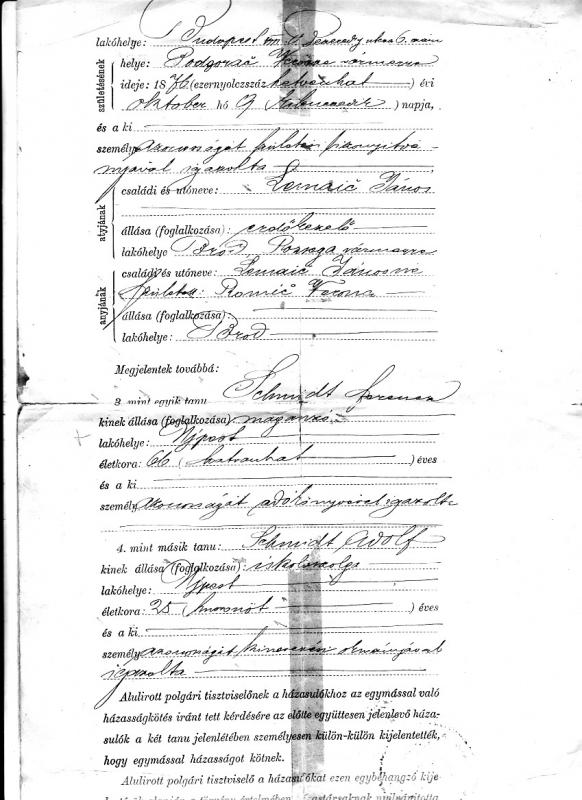 lakóhelye: Budapest VIII. ker. utca 6. szám
születésének
helye: Podgorač vármegye
ideje: 1876 (ezernyolczszáz hetvenhat) évi
október hó 9 (kilencedik) napja,
és a ki
személyazonosságát születési bizonyítvá-
nyával igazolta
atyjának
családi és utóneve: Lemaič János
állása (foglalkozása): erdőkezelő
lakóhelye Brod, Pozsega vármegye
anyjának
családi és utóneve: Lemaič Jánosné
született: Romič Verona
állása (foglalkozása):
lakóhelye: Brod
Megjelentek továbbá:
3. mint egyik tanu: Schmidt Ferencz
kinek állása (foglalkozása): magánzó
lakóhelye: Ujpest
életkora: 66 (hatvanhat) éves
és a ki
személyazonosságát adókönyvével igazolta
4. mint másik tanu: Schmidt Adolf
kinek állása (foglalkozása): iskolaszolga
lakóhelye: Ujpest
életkora: 25 (huszonöt) éves
és a ki
személyazonosságát kinevezési okmányával
igazolta
Alulirott polgári tisztviselőnek a házasulókhoz az egymással való
házasságkötés iránt tett kérdésére az előtte együttesen jelenlevő háza-
sulók a két tanu jelenlétében személyesen külön-külön kijelentették,
hogy egymással házasságot kötnek.
Alulirott polgári tisztviselő a házasulókat ezen egybehangzó kije-
lentésük alapján a törvény értelmében házastársaknak nyilvánította